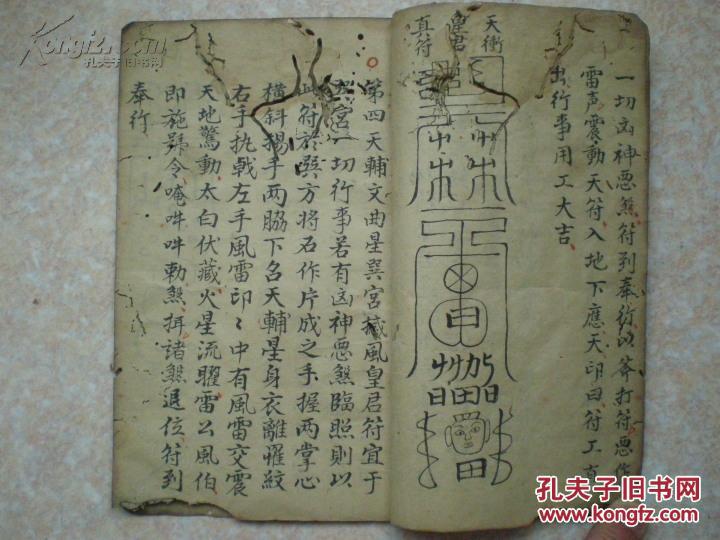 一切凶神恶煞符到奉行以斧打符恶作
雷声震動天符入地下應天印曰符工
出行事用工大吉
天衝
皇君
真符
第四天輔文曲星巽宫撼風皇君符宜于
宫一切行事若有凶神恶煞臨照則以
此符於巽方将石作片成之手握两掌心
横斜揚手两脇下名天輔星身衣離羅紋
右手执戟左手風雷印〻中有風雷交震
天地驚動太白伏藏火星流耀雷公風伯
即施號令唵吽吽勅煞揖諸煞退位符到
奉行
孔夫子旧书网
www.kongfz.com
Kongfz.com
孔夫子旧书网